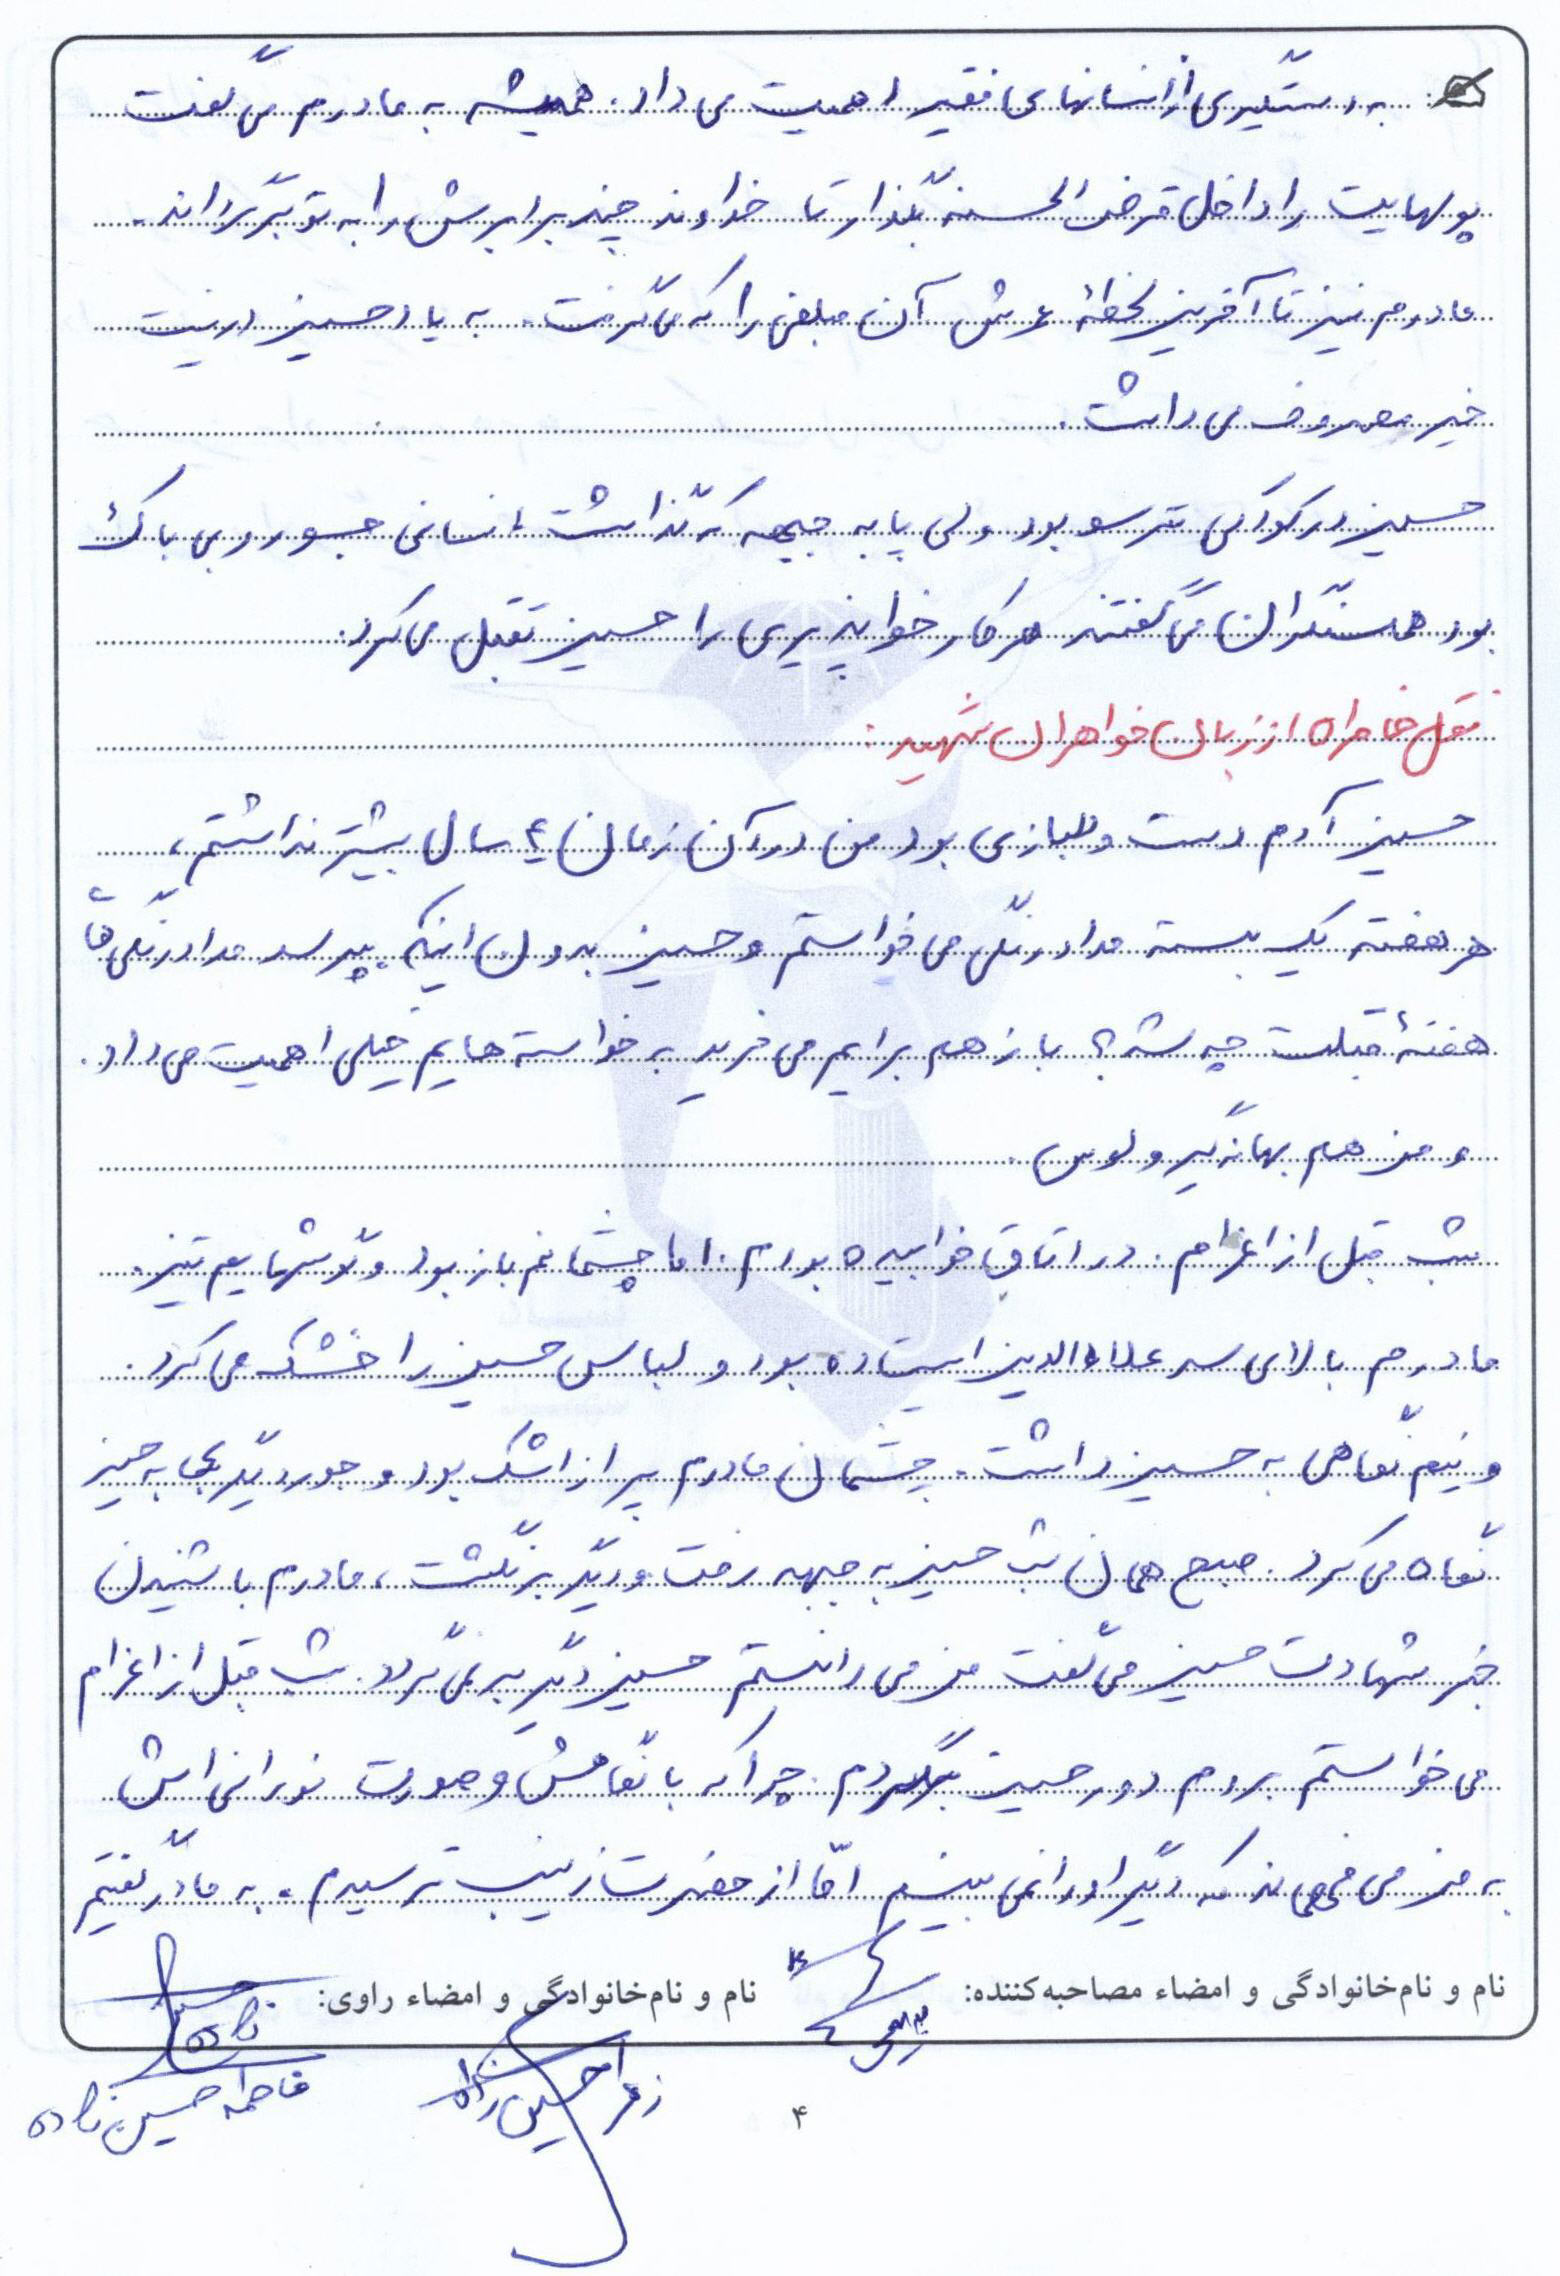 به دستگیری از انسانهای فقیر اهمیت می داد. همیشه به مادرم می گفت
پولهایت را داخل قرض الحسنه بگذار تا خداوند چند برابرش را به تو برگرداند.
مادرم نیز تا آخرین لحظهٔ عمرش آن مبلغی را که می گرفت. به یاد حسین در نیت
خیر مصروف می داشت.
حسین در کودکی ترسو بود ولی پا به جبهه که گذاشت انسانی جسور و بی باک
بود همسنگرانش می گفتند هر کار خطرپذیری را حسین تقبل می کرد.
نقل خاطراه از زبان خواهران شهید:
حسین آدم دست و دلبازی بود من در آن زمان ۴ سال بیشتر نداشتم،
هر هفته یک بسته مداد رنگی می خواستم و حسین بدون اینکه بپرسد مداد رنگی های
هفتهٔ قبلت چه شد؟ باز هم برایم می خرید به خواسته هایم خیلی اهمیت می داد.
و من هم بهانه گیر و لوس.
شب قبل از اعزام. در اتاق خوابیده بودم. اما چشمانم باز بود و گوشهایم تیز.
مادرم بالای سر علاءالدین ایستاده بود و لباس حسین را خشک می کرد.
و نیم نگاهی به حسین داشت. چشمان مادرم پر از اشک بود و جور دیگری به حسین
نگاه می کرد. صبح همان شب حسین به جبهه رفت و دیگر برنگشت، مادرم با شنیدن
خبر شهادت حسین می گفت من می دانستم حسین دیگر بر نمی گردد. شب قبل از اعزام
می خواستم بروم دور حسین بگردم. چرا که با نگاهش و صورت نورانی اش
به من می فهماند که دیگر او را نمی بینم امّا از حضرت زینب ترسیدم. به مادر گفتیم
نام و نام‌خانوادگی و امضاء مصاحبه‌کننده:
نام و نام‌خانوادگی و امضاء راوی:
زهرا حسین زاده
فاطمه حسین زاده
۴